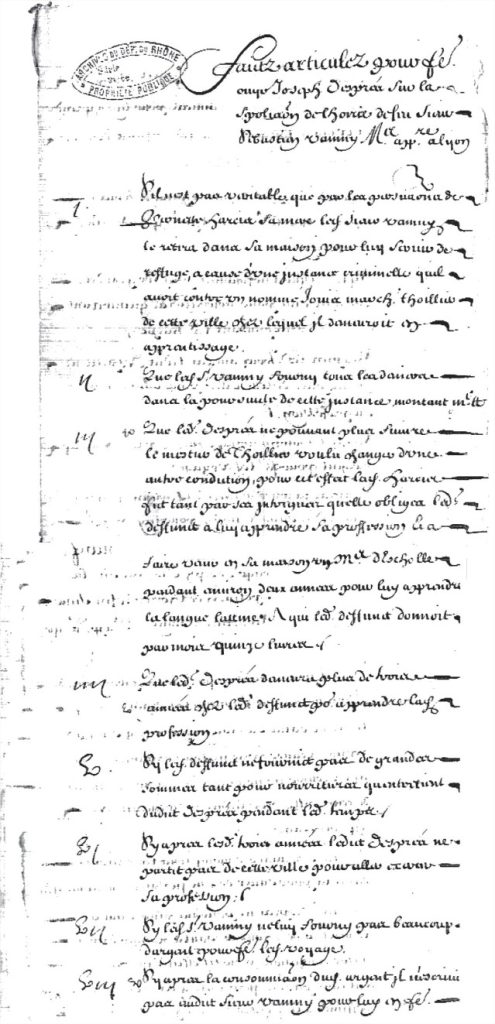 ARCHIVES DU DÉP. DU RHÔNE
PROPRIÉTÉ PUBLIQUE
Faitz articulez pour fe.
ouyr Joseph Despréz sur la
spoliaõn de l'horie de feu sieur
Sebastien Vanny Mre app.re a Lyon
I
S'il n'est pas veritable que par les persuasions de
Garcin sa mere led. sieur Vanny
le retira dans sa maison pour luy servir de
reffuge, a cause d'une instance criminelle quil
avoit contre un nomme march. thoillier
de cette ville chez lequel il demeuroit en
apprentissage.
II
Que led. Sr. Vanny fourny tous les deniers
dans la poursuite de cette instance montant
III
Que led. Despréz ne pouvant plus suivre
le mestier de Thoillier voulu changer d'une
autre condition, pour cet effect lad. Garcin
fit tant par ses intrigues quelle obligea led.
deffunct a luy apprendre sa proffession et a
faire venir en sa maison un Mre d'Eschelle
pendant environ deux annees pour luy apprendre
la langue lattine, A qui led. deffunct donnoit
par mois quinze livres
IIII
Que led. Despréz demeura plus de trois
annees chez led. deffunct po. apprendre lad.
profession
V
Sy led. deffunct ne fournit pas de grandes
sommes tant pour nourritures quentretient
dudit Despréz pendant led. temps
VI
Sy apres lesd. trois annees ledit Despréz ne
partit pas de cette ville pour aller
sa profession
VII
Sy led. Sr. Vanny ne luy fourny pas beaucoup
dargent pour fe. led. voyage
VIII
Sy apres la consommaõn dud. argent il n'escrivi
pas audit sieur Vanny pour luy en fe.